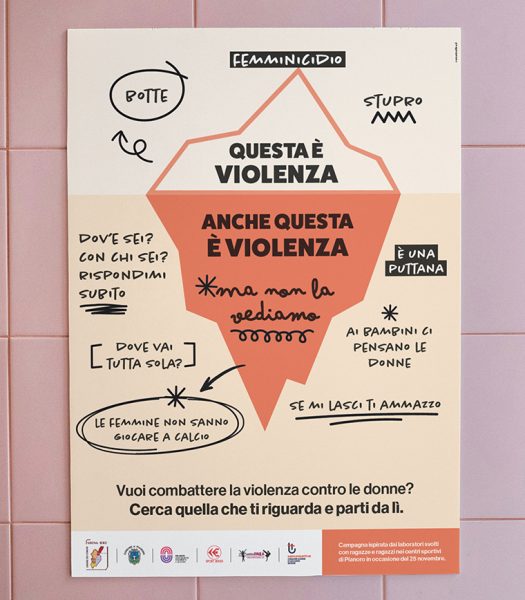 FEMMINICIDIO
BOTTE
STUPRO
QUESTA È
VIOLENZA
ANCHE QUESTA
È VIOLENZA
*ma non la
vediamo
DOV'E SEI?
CON CHI SEI?
RISPONDIMI
SUBITO
È UNA
PUTTANA
[DOVE VAI
TUTTA SOLA?]
*
AI BAMBINI CI
PENSANO LE
DONNE
*
LE FEMMINE NON SANNO
GIOCARE A CALCIO
SE MI LASCI TI AMMAZZO
Vuoi combattere la violenza contro le donne?
Cerca quella che ti riguarda e parti da lì.
Campagna ispirata dai laboratori svolti
con ragazze e ragazzi nei centri sportivi
di Pianoro in occasione del 25 novembre.